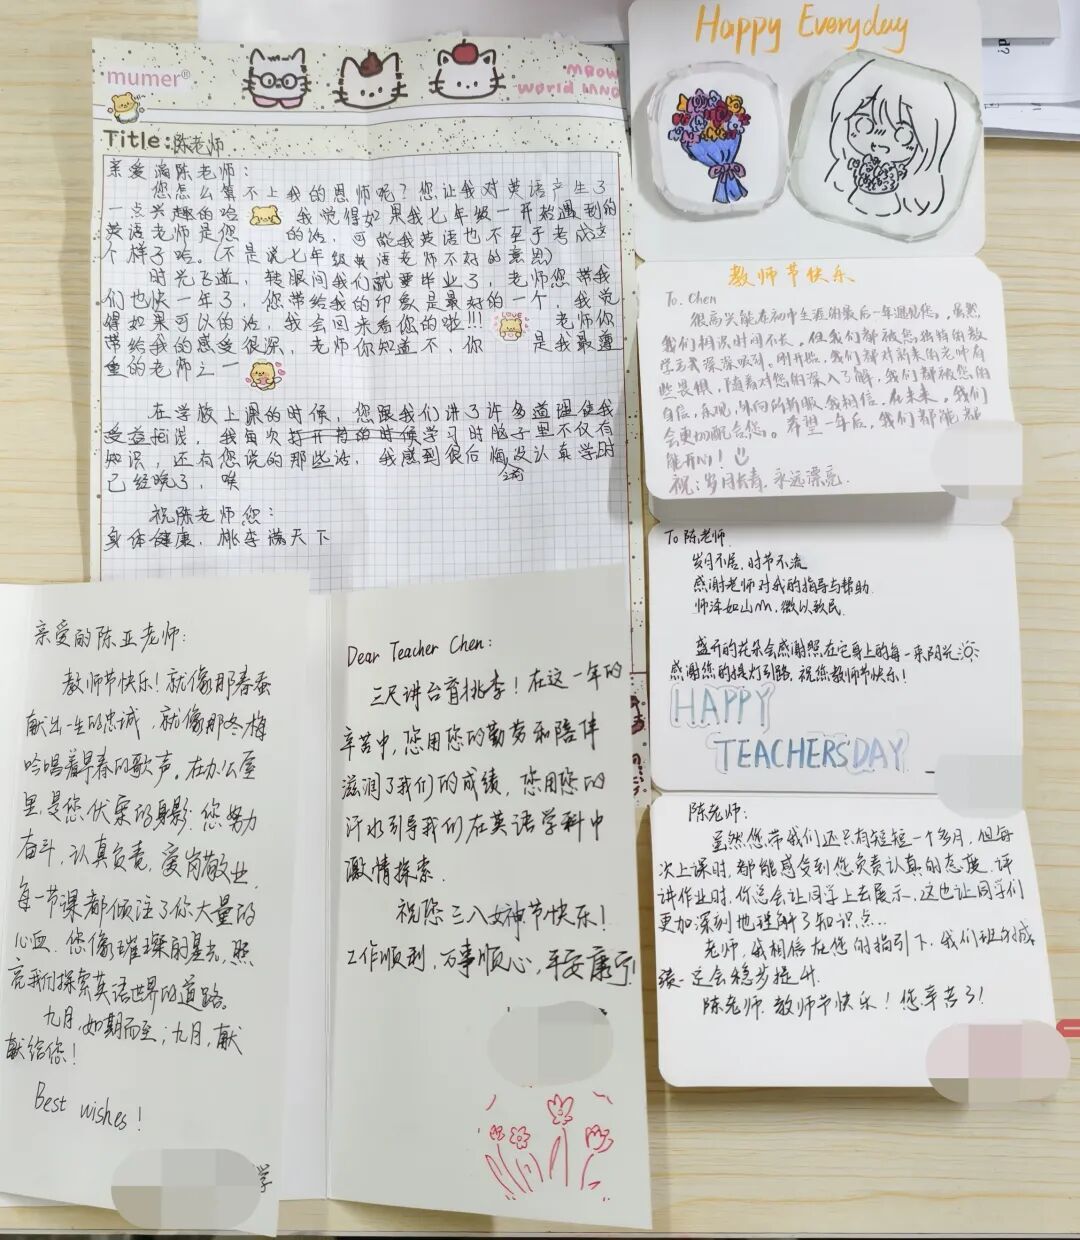 mumer®
MEOW
World LAND
Title:陈老师
亲爱滴陈老师：
您怎么算不上我的恩师呢？您让我对英语产生了
一点兴趣的哈 我觉得如果我七年级一开始遇到的
英语老师是您 的话，可能我英语也不至于考成这
个样子哈。(不是说七年级英语老师不好的意思)
时光飞逝，转眼间我们就要毕业了，老师您带我
们也快一年了，您带给我的印象是最好的一个，我觉
得如果可以的话，我会回来看您的啦!!! 老师你
带给我的感受很深，老师你知道不，你 是我最尊
重的老师之一
在学校上课的时候，您跟我们讲了许多道理使我
受益匪浅，我每次打开书的时候学习时脑子里不仅有
知识，还有您说的那些话，我感到很后悔没认真学时
已经晚了，唉
祝陈老师您：
身体健康，桃李满天下
Happy Everyday
教师节快乐
To. Chen
很高兴能在初中生涯的最后一年遇见您。虽然，
我们相识时间不长，但我们都被您独特的教
学方式深深吸引。刚开始，我们都对新来的老师有
些畏惧，随着对您的深入了解，我们都被您的
自信，乐观，外向所折服，我相信，在未来，我们
会更加配合您。希望一年后，我们都能都
能开心！
祝：岁月长青，永远漂亮
To 陈老师
岁月不居，时节不流
感谢老师对我的指导与帮助
师泽如山，微以致民
盛开的花朵会感谢照在它身上的每一束阳光
感谢您的提灯引路，祝您教师节快乐！
HAPPY
TEACHERSDAY
陈老师：
虽然您带我们还只有短短一个多月，但每
次上课时，都能感受到您负责认真的态度，评
讲作业时，你总会让同学上去展示，这也让同学们
更加深刻地理解了知识点...
老师，我相信在您的指引下，我们班的成
绩一定会稳步提升
陈老师，教师节快乐！您辛苦了！
亲爱的陈亚老师：
教师节快乐！就像那春蚕
献出一生的忠诚，就像那冬梅
吟唱着早春的歌声。在办公屋
里，是您伏案的身影，您努力
奋斗，认真负责，爱岗敬业，
每一节课都倾注了你大量的
心血，您像璀璨的星光，照
亮我们探索英语世界的道路。
九月，如期而至；九月，献
献给您！
Best wishes！
学
Dear Teacher Chen:
三尺讲台育桃李！在这一年的
辛苦中，您用您的勤劳和陪伴
滋润了我们的成绩，您用您的
汗水引导我们在英语学科中
激情探索.
祝您三八女神节快乐！
工作顺利，万事顺心，平安康宁！